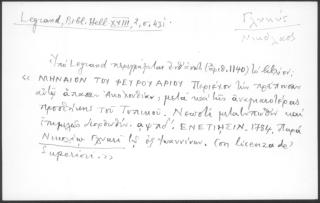 Legrand, Bibl. Hell. XVIII, 2, σ. 431
Γλυκύς
Νικόλαος
Ὑπὸ Legrand περιγράφεται (ἀριθ. 1140) τὸ βιβλίον:
« ΜΗΝΑΙΟΝ ΤΟΥ ΦΕΥΡΟΥΑΡΙΟΥ Περιέχον τὴν πρέπουσαν
αὐτῷ ἅπασαν Ἀκολουθίαν, μετὰ καὶ τῆς ἀναγκαιοτέρας
προσθήκης τοῦ Τυπικοῦ. Νεωστὶ μετατυπωθὲν καὶ
ἐπιμελῶς διορθωθέν. αψπδ'. ΕΝΕΤΙΗΣΙΝ. 1784. Παρὰ
Νικολάῳ Γλυκεῖ τῷ ἐξ Ἰωαννίνων. Con licenza de'
Superiori. »